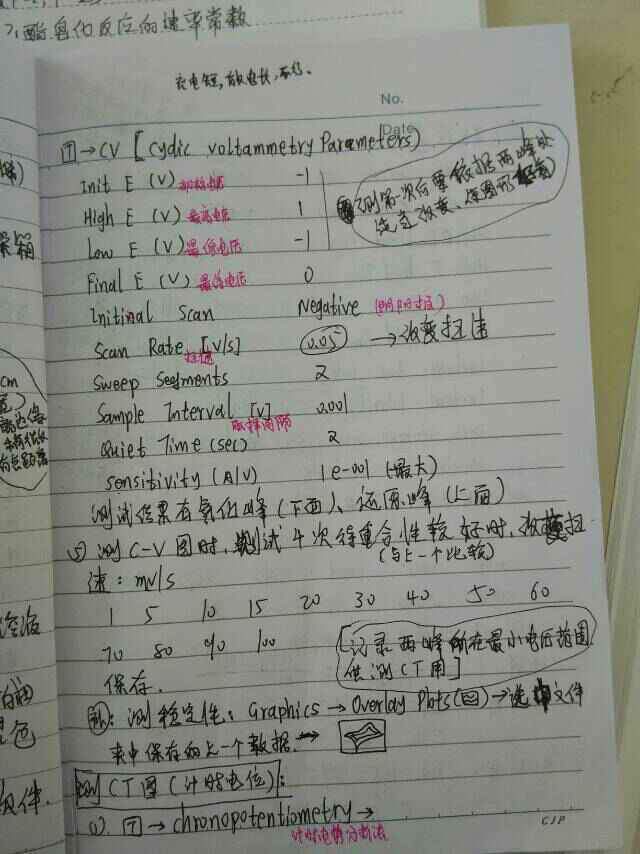 反应的速率常数
充电短，放电长，不行。
No.
Date
T → CV [Cyclic voltammetry Parameters)
Init E (V) 初始电压 -1
High E (V) 最高电压 1
Low E (V) 最低电压 -1
Final E (V) 最终电压 0
Initinal Scan Negative (阴阳扫)
Scan Rate [V/s] 扫速 0.05 → 改变扫速
Sweep Segments 2
Sample Interval [V] 0.001
取样间隔
Quiet Time (sec) 2
Sensitivity (A/V) 1e-001 (最大)
测试结果有氧化峰(下面)、还原峰(上面)
测C-V图时, 测试4次得重合性较好时, 改变扫
(与上一个比较)
速: mV/s
1 5 10 15 20 30 40 50 60
70 80 90 100
[记录两峰所在最小电压范围
供测CT用]
保存.
补: 测稳定性: Graphics → Overlay Plots → 选中文件
夹中保存的上一个数据.
测CT图(计时电位):
(1). T → chronopotentiometry →
计时电势分析法
CJP
cm
箱
色